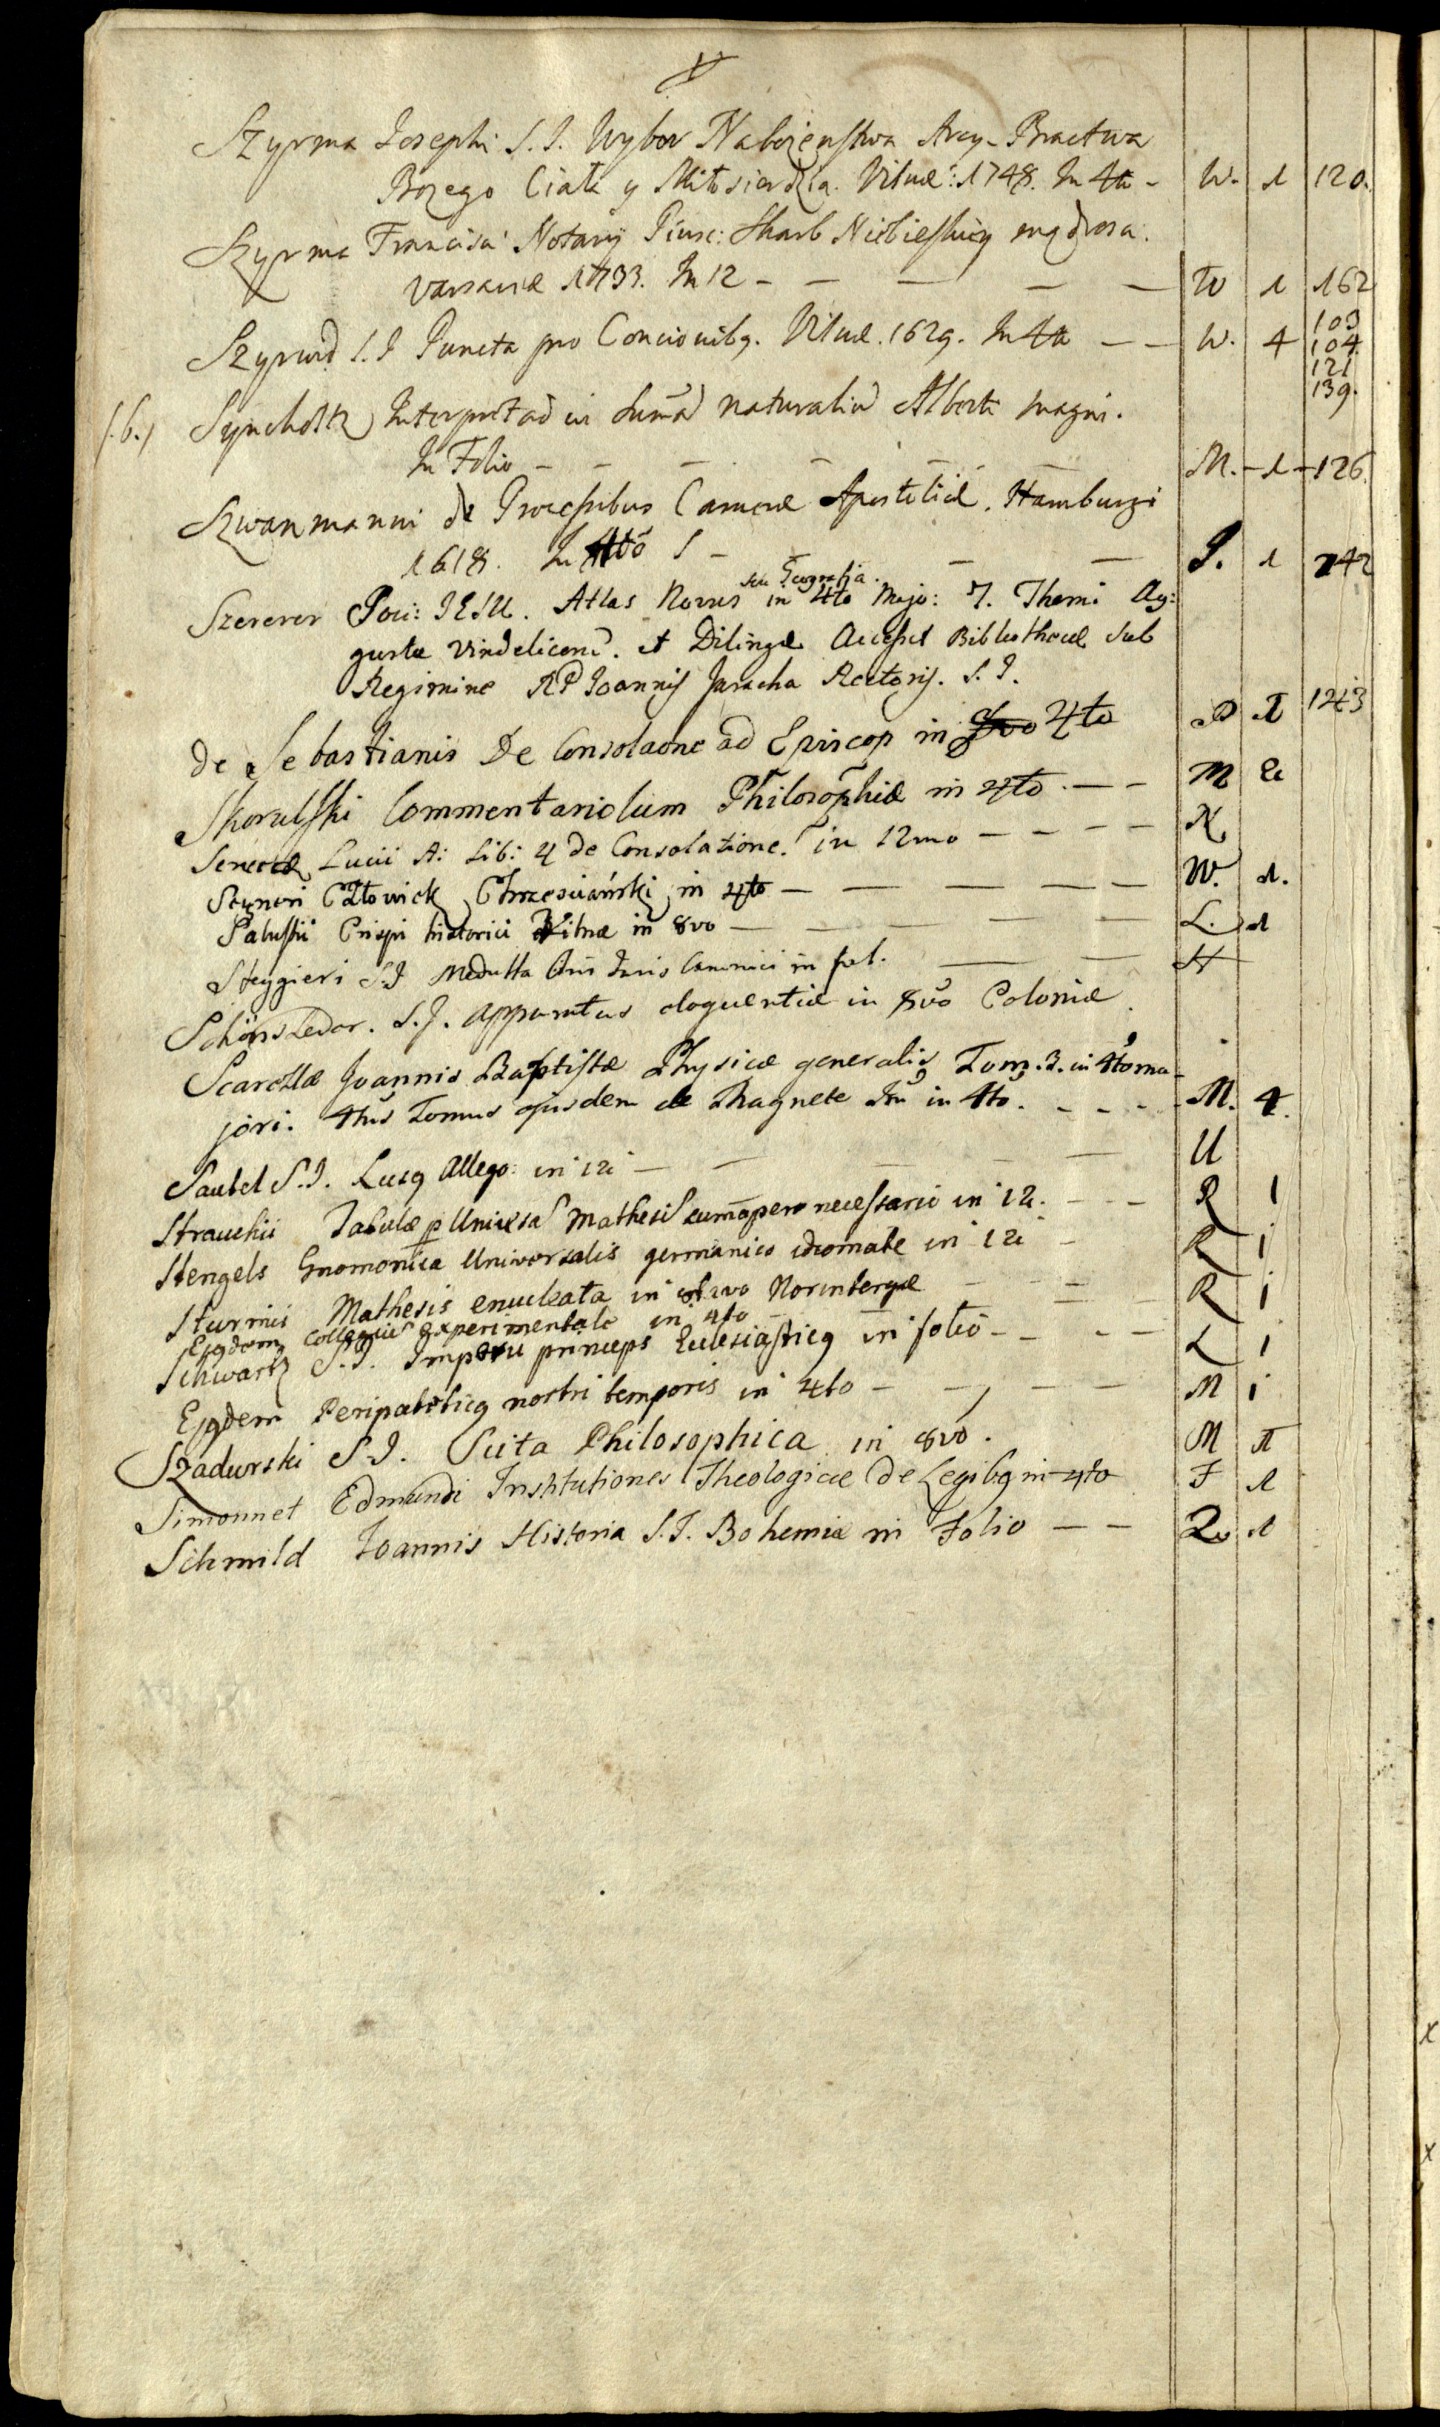 Szyrma Josephi S. J. Wybor Nabozenstwa Arcy-Bractwa
Bozego Ciała y Miłosierdzia. Vilnæ: 1748. In 4to - W. 1 120.
Szyrma Francisci Notarij Pinsc: Skarb Niebieskiey mądrosci.
Varsaviæ 1733. In 12 - - - - - W 1 162
Szyrwid S. J Puncta pro Concionibq. Vilnæ. 1629. In 4to - - W. 4 103
104.
121
139.
Interpretao in Suma naturaliu Alberti magni.
In Folio - - - - - - M. - 1 - 126.
Szwanmanni de Processibus Cameræ Apostolicæ. Hamburgi
1618. In 4to - - - J. 1 242
seu Geografia.
Szererer Soci: JESU. Atlas Novus in 4to Majo: 7. Thomi Au:
gustæ Vindelicoru. et Dilingæ Accessit Bibliothecæ sub
Regimine RP Joannis Juracha Rectoris. S. J.
de Sebastianis De Consolaone ad Episcop in 8vo 4to P 1 1243
Skorulski Commentariolum Philosophiæ in 4to. - - M 2
Senecæ Lucii A: Lib: 4 de Consolatione. in 12mo - - - - N
Człowiek Chrzesciański in 4to - - - - - W. 1.
Salustii Crispi historici Vilnæ in 8vo - - - - L. 1
Steygieri S.J Medulla Juris Canonici in fol. - - H
S. J. apparatus eloquentiæ in 8vo Coloniæ
Scarellæ Joannis Baptistæ Physicæ generalis Tom. 3. in 4to ma-
jori. 4tus Tomus ejusdem de Magnete in 4to. - - - - M. 4.
Sautel S. J. Lusq Allego: in 12 - - - - - U
Strauchii Tabulæ p Universa Mathesi necessario in 12. - - - R 1
Stengels Gnomonica Universalis germanico idiomate in 12 - R 1
Sturmii Mathesis enucleata in octavo Norimbergæ - - R 1
Ejqdem Collegiu experimentale in 4to - - -
Schwartz S. J. princeps Ecclesiasticq in folio - - - - L 1
Ejqdem Peripateticq nostri temporis in 4to - - - - M 1
Szadurski S J. Scita Philosophica in 8vo. M 1
Simonnet Edmundi Institutiones Theologicæ de Legibq in 4to F 1
Schmild Joannis Historia S. J. Bohemiæ in Folio - - Q 1